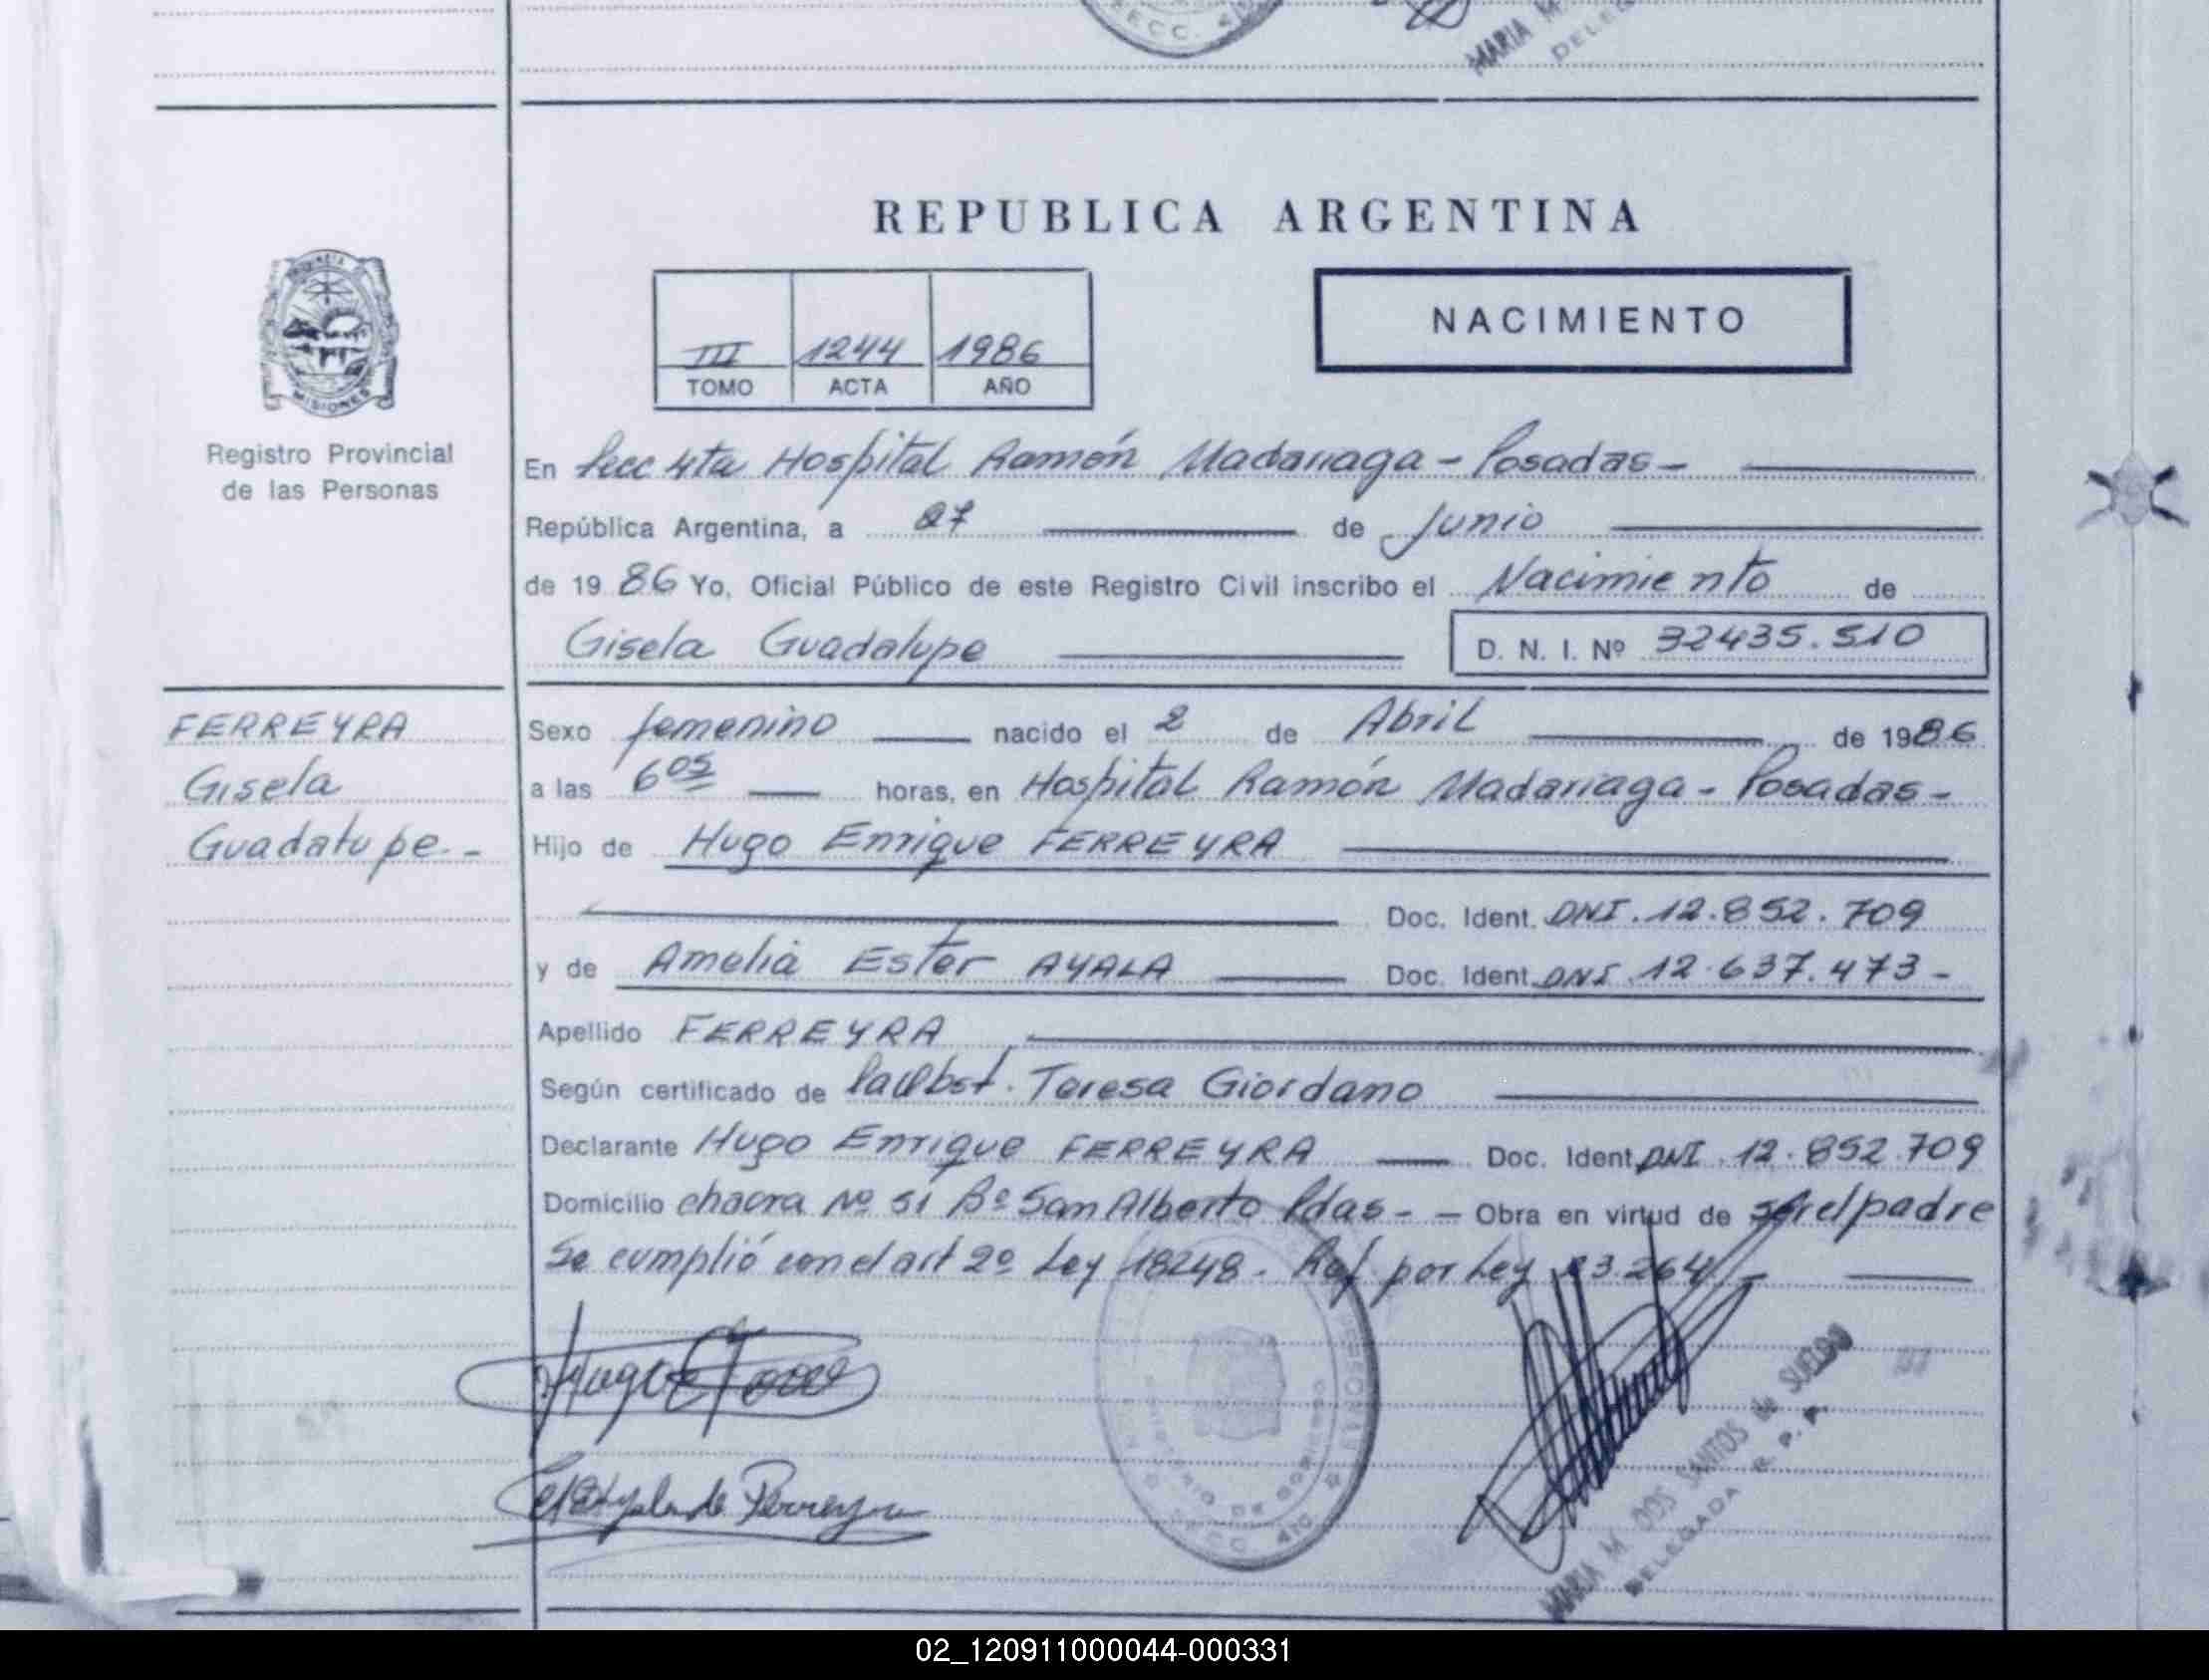 SECC. 4ta
MARIA M.
DELEG
REPUBLICA ARGENTINA
PROVINCIA
MISIONES
III 1244 1986
TOMO ACTA AÑO
NACIMIENTO
Registro Provincial
de las Personas
En Secc 4ta Hospital Ramón Madariaga - Posadas -
República Argentina, a 27 de Junio
de 1986 Yo, Oficial Público de este Registro Civil inscribo el Nacimiento de
Gisela Guadalupe D. N. I. Nº 32435.510
FERREYRA
Gisela
Guadalupe. -
Sexo femenino nacido el 2 de Abril de 1986
a las 6 05 horas, en Hospital Ramón Madariaga - Posadas -
Hijo de Hugo Enrique FERREYRA
Doc. Ident. DNI. 12.852.709
y de Amelia Ester AYALA Doc. Ident. DNI. 12.637.473 -
Apellido FERREYRA
Según certificado de Teresa Giordano
Declarante Hugo Enrique FERREYRA Doc. Ident. DNI. 12.852.709
Domicilio chacra Nº 51 Bº San Alberto Pdas - - Obra en virtud de ser el padre
Se cumplió con el art 2º Ley 18248. Ref. por Ley 23.264 -
MINISTERIO DE GOBIERNO
SECC. 4ta
MARIA M. DOS SANTOS de SUELDO
DELEGADA R. P. P.
02_120911000044-000331